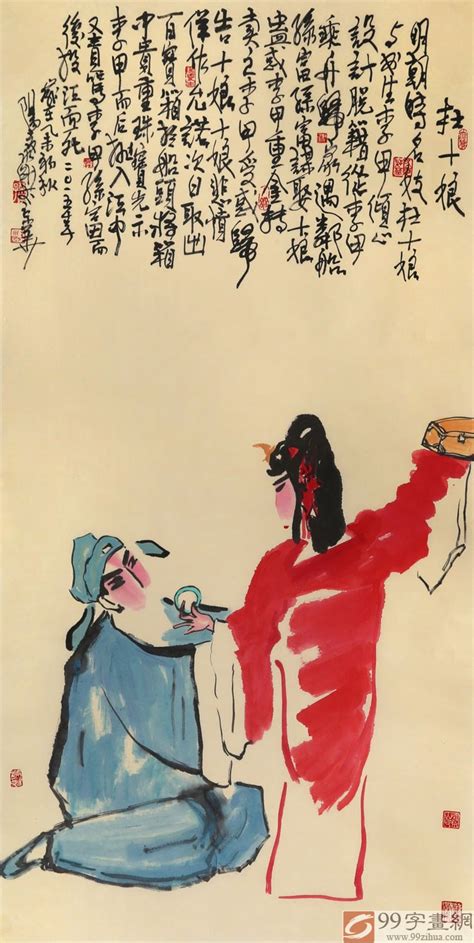 杜十娘
明朝時名妓杜十娘
与書生李甲傾心
設計脫籍從李甲
乘舟歸家遇鄰船
孫富孫富謀娶十娘
蠱惑李甲重金轉
賣之李甲受惑歸
告十娘十娘悲憤
佯作允諾次日取出
百寶箱於船頭將箱
中貴重珠寶先示
李甲而后抛入江中
又責罵李甲孫富而
後投江而死二〇一五年
99字畫網
www.99zihua.com